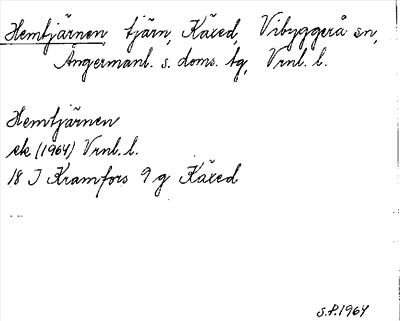 Hemtjärnen tjärn, Käxed, Vibyggerå sn,
Ångermanl. s. doms. tg, Vrnl. l.
Hemtjärnen
ek (1964) Vrnl. l.
18 J Kramfors 9 g Käxed
S.P. 1964